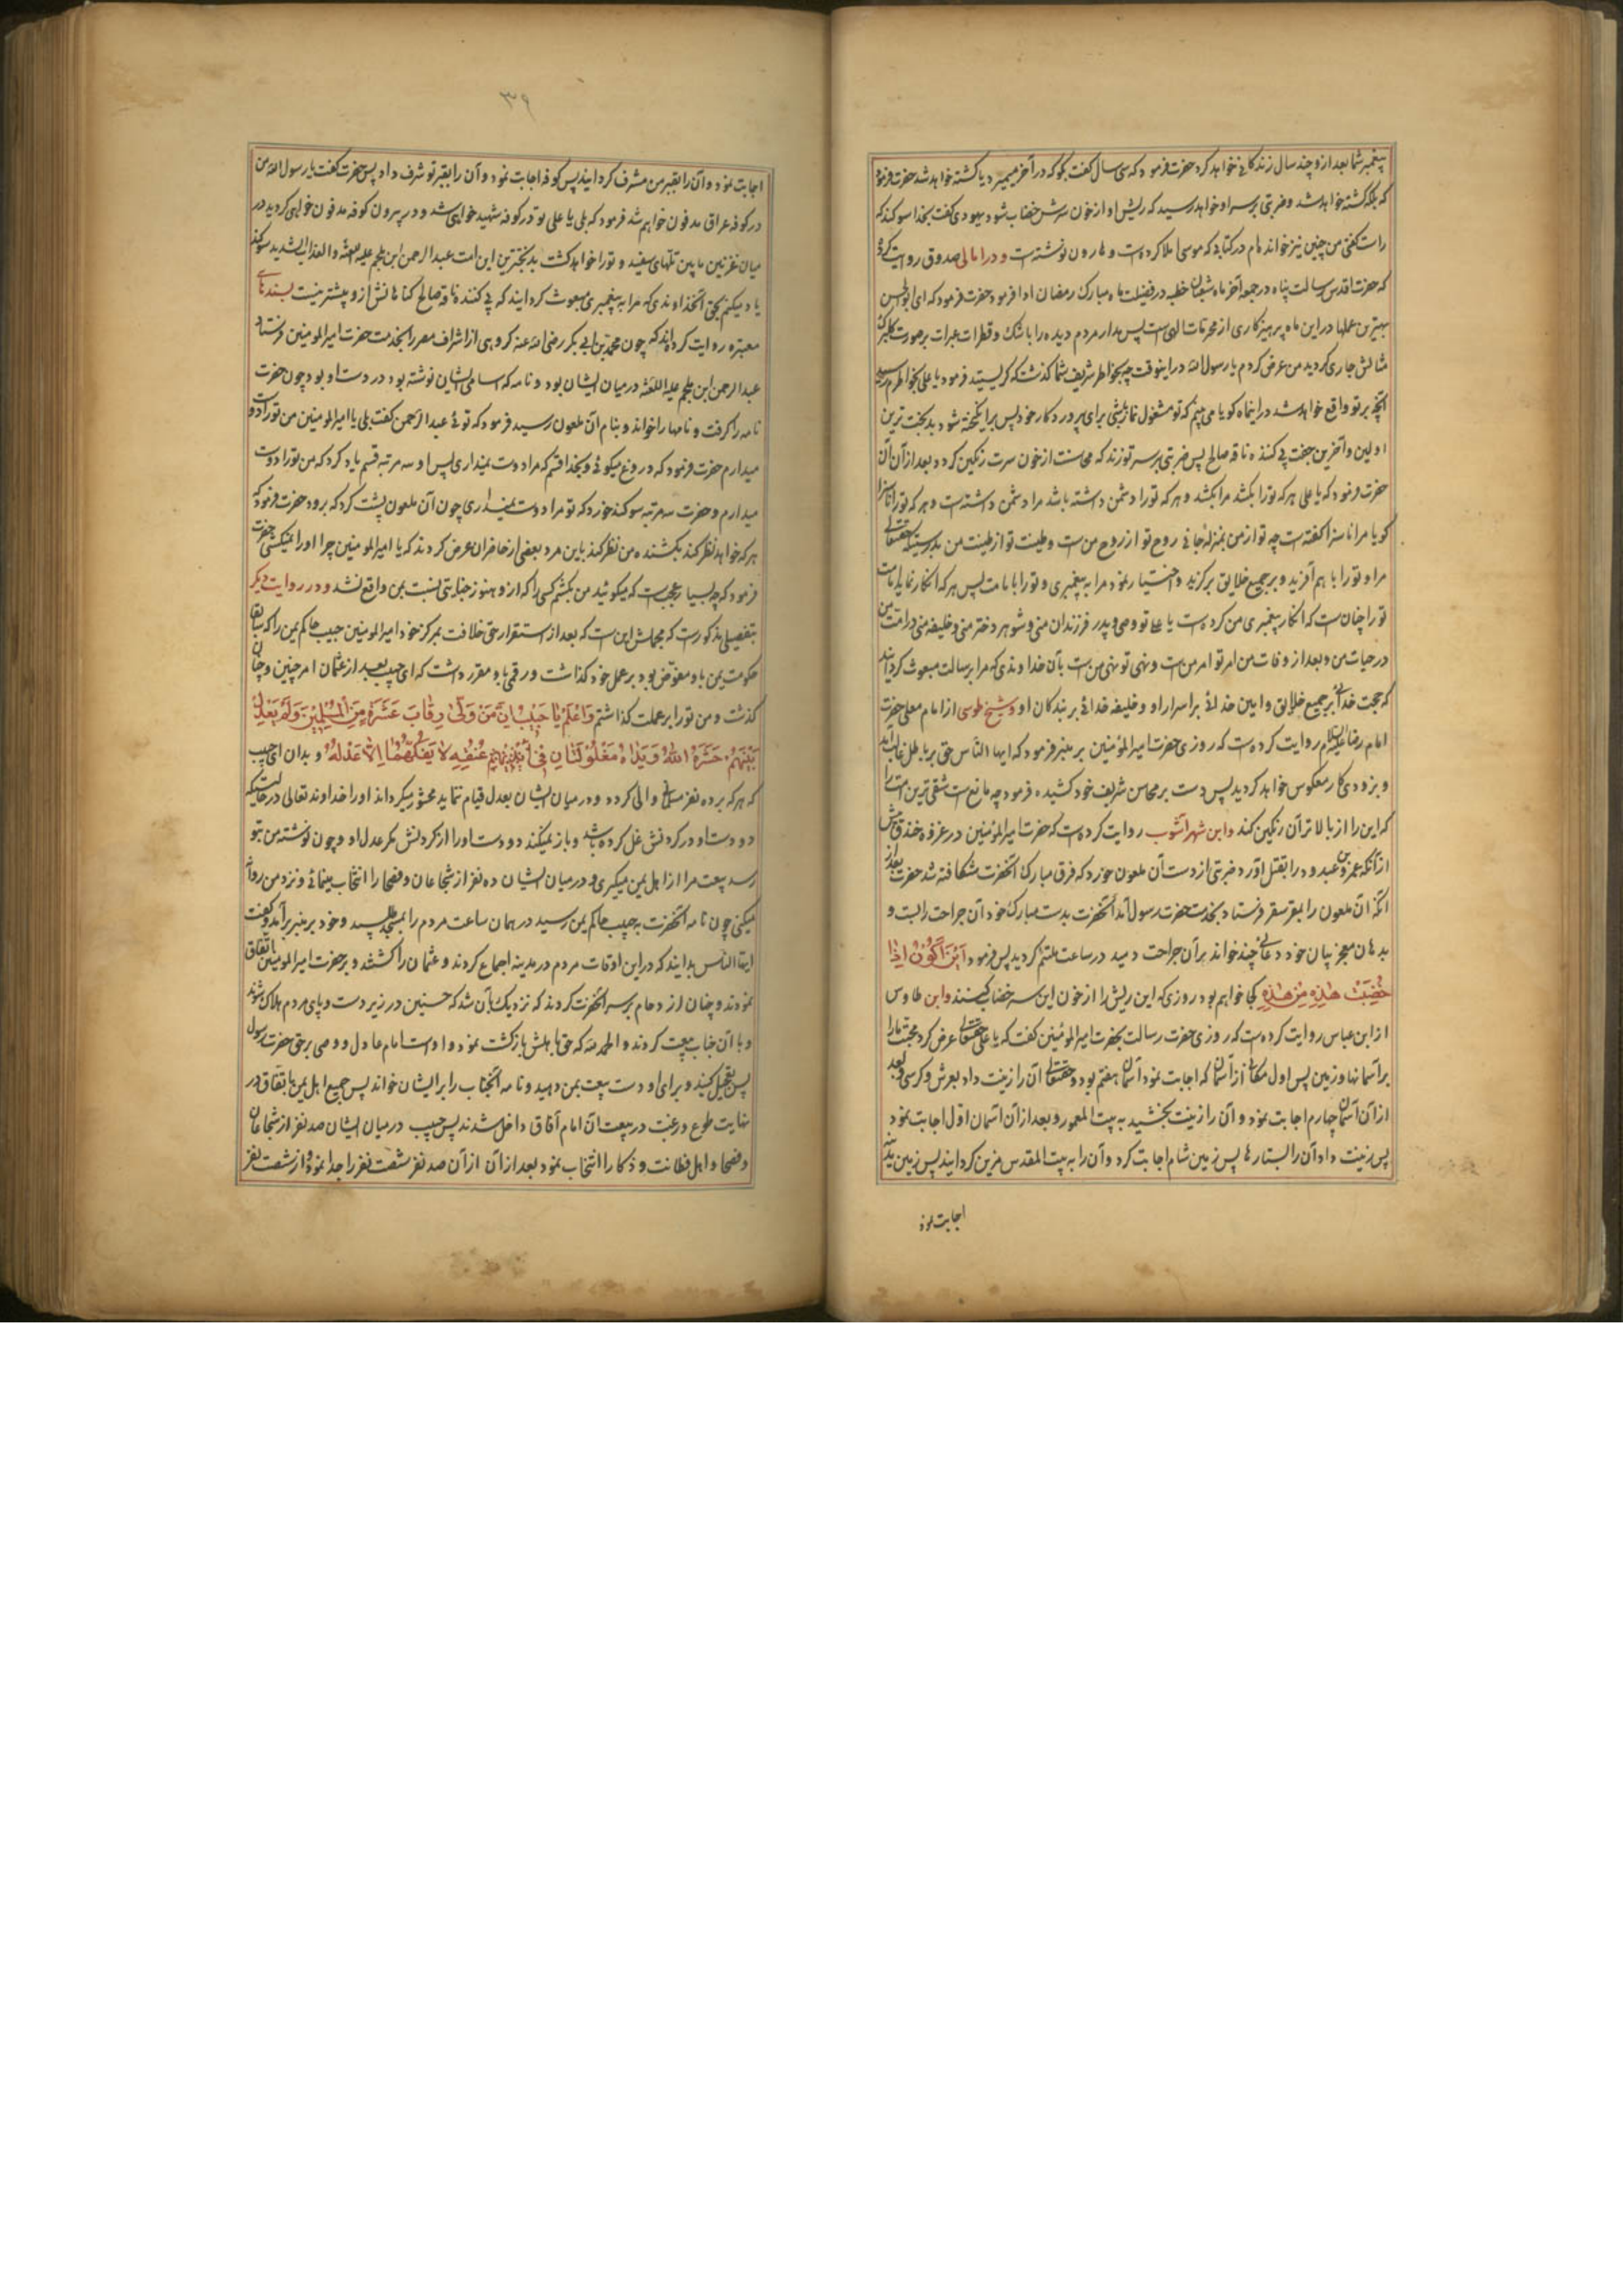 پیغمبر شما بعد از و چند سال زندگانی خواهد کرد حضرت فرمود که سی سال گفت بگو که در آخر میمیرد یا کشته خواهد شد حضرت فرمود
که بلکه کشته خواهد شد و ضربتی بر سر او خواهد رسید که ریش او از خون سرش خضاب شود یهودی گفت بخدا سوکند که
راست گفتی من چنین نیز خوانده‌ام در کتابی که موسی املا کرده است و هارون نوشته است و در امالی صدوق روایت کرده
که حضرت اقدس رسالت پناه در جمعه آخر ماه شعبان خطبه در فضیلت ماه مبارک رمضان ادا فرمود حضرت فرمود که ای ابوالحسن
بهترین عملها در این ماه پرهیزکاری از محرمات الهی است پس مدار مردم دیده را با اشک و قطرات عبرات بر صورت
مثالش جاری کردید من عرض کردم یا رسول الله در اینوقت چه بخاطر شریف شما گذشت که گریستید فرمود یا علی بخاطرم رسید
آنچه بر تو واقع خواهد شد در اینماه کویا می بینم که تو مشغول نماز باشی برای پروردکار خود پس برانگیخته شود بدبخت ترین
اولین و آخرین جفت پی کننده ناقه صالح پس ضربتی بر سر تو زند که محاسنت از خون سرت رنگین کردد بعد از آن آن
حضرت فرمود که یا علی هر که تو را بکشد مرا بکشد و هر که تو را دشمن داشته باشد مرا دشمن داشته است و هر که تو را ناسزا
کویا مرا ناسزا گفته است چه تو از من بمنزله جانی روح تو از روح من است و طینت تو از طینت من بدرستیکه حقتعالی
مرا و تو را با هم آفرید و بر جمیع خلایق برگزید و اختیار نمود مرا به پیغمبری و تو را بامامت پس هر که انکار نماید امامت
تو را چنان است که انکار پیغمبری من کرده است یا علی تو وصی و پدر فرزندان منی و شوهر دختر منی و خلیفه منی در امت من
در حیات من و بعد از وفات من امر تو امر من است و نهی تو نهی من است بآن خداوندی که مرا برسالت مبعوث کردانید
که حجت خدائی بر جمیع خلایق و امین خدائی بر اسرار او و خلیفه خدائی بر بندکان او و شیخ طوسی از امام معلی حضرت
امام رضا علیه السلام روایت کرده است که روزی حضرت امیرالمؤمنین بر منبر فرمود که ایها الناس حق بر باطل غالب آید
و بزودی کار معکوس خواهد کردید پس دست بر محاسن شریف خود کشیده فرمود چه مانع است شقی ترین امت را
که این را از بالا تر آن رنگین کند و ابن شهرآشوب روایت کرده است که حضرت امیرالمؤمنین در غزوه خندق پیش
از آنکه عمرو بن عبدود را بقتل آورد ضربتی از دست آن ملعون خورد که فرق مبارک آنحضرت شکافته شد حضرت بعد از
آنکه آن ملعون را بقعر سقر فرستاد بخدمت حضرت رسول آمد آنحضرت بدست مبارک خود آن جراحت را بست و
بدهان معجز بیان خود دعائی چند خواند بر آن جراحت دمید در ساعت ملتئم کردید پس فرمود اَیْنَ اَکُونُ اِذَا
خُضِبَتْ هٰذِهِ مِنْ هٰذِهِ کجا خواهم بود روزی که این ریش را از خون این سر خضاب کنند و ابن طاوس
از ابن عباس روایت کرده است که روزی حضرت رسالت بحضرت امیرالمؤمنین گفت که یا علی حقتعالی عرض کرد محبت ما را
بر آسمانها و زمین پس اول مکانی از آسمان که اجابت نمود آسمان هفتم بود و حقتعالی آن را زینت داد بعرش و کرسی و بعد
از آن آسمان چهارم اجابت نمود و آن را زینت بخشید به بیت المعمور و بعد از آن آسمان اول اجابت نمود
پس زینت داد آن را بستاره‌ها پس زمین شام اجابت کرد و آن را به بیت المقدس مزین کردانید پس زمین مدینه
اجابت نمود
۳۹
اجابت نمود و آن را بقبر من مشرف کردانید پس کوفه اجابت نمود و آن را بقبر تو شرف داد پس حضرت گفت یا رسول الله من
در کوفه عراق مدفون خواهم شد فرمود که بلی یا علی تو در کوفه شهید خواهی شد و در بیرون کوفه مدفون خواهی کردید در
میان غریین ما بین تلهای سفید و تو را خواهد کشت بدبختترین این امت عبدالرحمن ابن ملجم علیه اللعنة و العذاب الشدید سوکند
یاد میکنم بحق آنخداوندی که مرا به پیغمبری مبعوث کردانید که پی کننده ناقه صالح کناهانش از و بیشتر نیست بسندهای
معتبره روایت کرده‌اند که چون محمد بن ابی بکر رضی الله عنه کروهی از اشراف مصر را بخدمت حضرت امیرالمومنین فرستاد
عبدالرحمن ابن ملجم علیه اللعنه در میان ایشان بود و نامه که اسامی ایشان نوشته بود در دست او بود چون حضرت
نامه را گرفت و نامها را خواند و بنام آن ملعون رسید فرمود که توئی عبدالرحمن گفت بلی یا امیرالمومنین من تو را دوست
میدارم حضرت فرمود که دروغ میکوئی و بخدا قسم که مرا دوست نمیداری پس او سه مرتبه قسم یاد کرد که من تو را دوست
میدارم و حضرت سه مرتبه سوکند خورد که تو مرا دوست نمیداری چون آن ملعون پشت کرد که برود حضرت فرمود که
هر که خواهد نظر کند بکشنده من نظر کند باین مرد بعضی از حاضران عرض کردند که یا امیرالمومنین چرا او را نمیکشی حضرت
فرمود که چه بسیار عجیب است که میکوئید من بکشم کسی را که از و هنوز جنایتی نسبت بمن واقع نشد و در روایت دیکر
بتفصیل مذکور است که مجملش این است که بعد از استقرار حق خلافت بمرکز خود امیرالمومنین حبیب حاکم یمن را که سابقا
حکومت یمن باو مفوض بود بر عمل خود گذاشت و رقمی باو مقرر داشت که ای حبیب بعد از عثمان امر چنین و چنان
گذشت و من تو را بر عملت گذاشتم وَاعْلَمْ یَا حَبِیبُ اَنَّ مَنْ وَلّیٰ رِقَابَ عَشَرَةٍ مِنَ الْمُسْلِمِینَ وَلَمْ یَعْدِلْ
بَیْنَهُمْ حَشَرَهُ اللهُ وَ یَدَاهُ مَغْلُولَتَانِ فِی عُنُقِهِ لَا یَفُکُّهُمَا اِلَّا عَدْلُهُ و بدان ای حبیب
که هر که بر ده نفر مسلمانی والی کردد و در میان ایشان بعدل قیام ننماید محشور میکرداند او را خداوند تعالی در حالتیکه
دو دست او در کردنش غل کرده باشد و باز نمیکند دو دست او را از کردنش مکر عدل او و چون نوشته من بتو
رسد بیعت مرا از اهل یمن میکیری و در میان ایشان ده نفر از شجاعان و فصحا را انتخاب مینمائی و نزد من روانه
میکنی چون نامه آنحضرت به حبیب حاکم یمن رسید در همان ساعت مردم را بمسجد طلبید و خود بر منبر برآمد و گفت
ایها الناس بدانید که در این اوقات مردم در مدینه اجماع کردند و عثمان را کشتند و بر حضرت امیرالمومنین اتفاق
نمودند و چنان ازدحام بر سر آنحضرت کردند که نزدیک بآن شد که حسنین در زیر دست و پای مردم هلاک شوند
و با آن جناب بیعت کردند و الحمد لله که حق باهلش بازگشت نمود و او است امام عادل و وصی بر حق حضرت رسول
پس تعجیل کنید و برای او دست بیعت بمن دهید و نامه آنجناب را بر ایشان خواند پس جمیع اهل یمن باتفاق در
نهایت طوع و رغبت در بیعت آن امام آفاق داخل شدند پس حبیب در میان ایشان صد نفر از شجاعان
و فصحا و اهل فطانت و ذکا را انتخاب نمود بعد از آن از آن صد نفر شصت نفر را جدا نمود و از شصت نفر